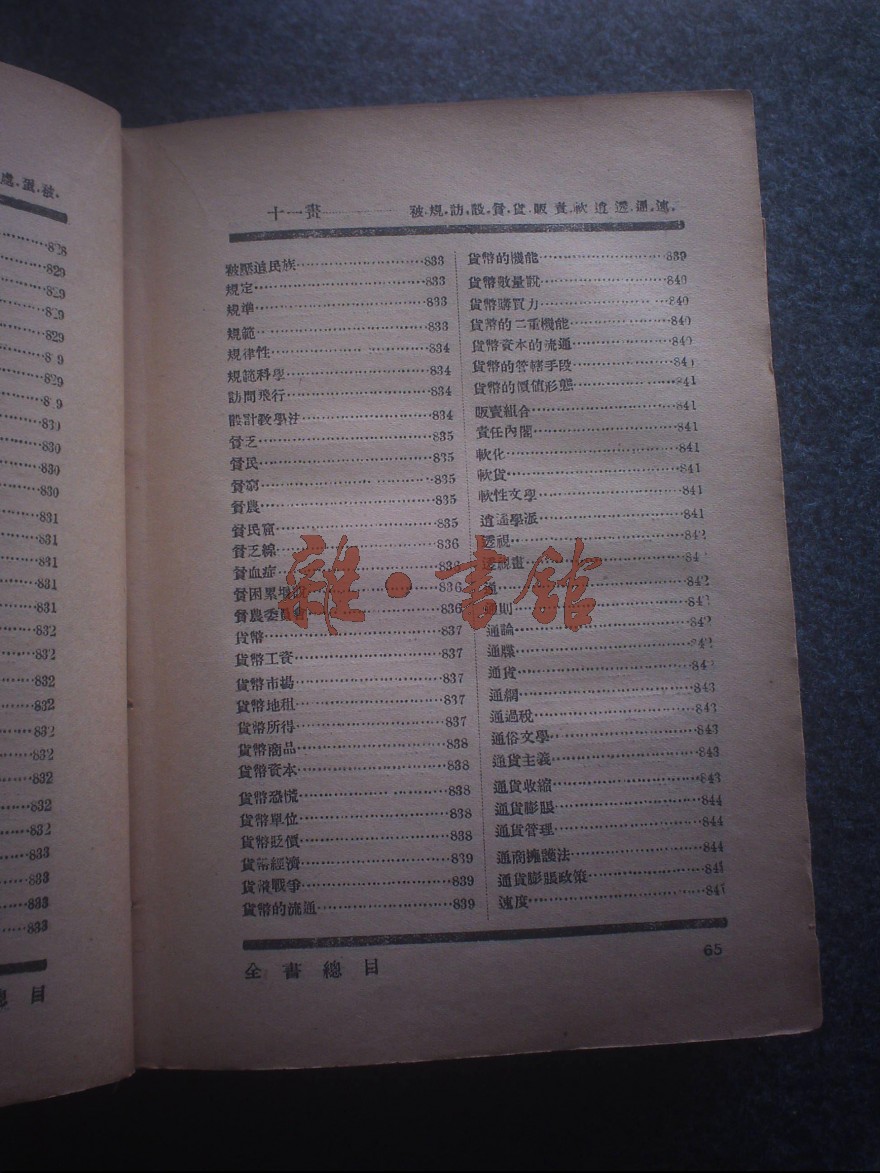 處.蛋.被.
828
829
829
829
829
829
830
830
830
830
831
831
831
831
831
832
832
832
832
832
832
832
832
832
833
833
833
833
目
十一畫————被.規.訪.設.貧.貨.販.責.軟.逍.透.通.速.
被壓迫民族……833
規定……833
規準……833
規範……833
規律性……834
規範科學……834
訪問飛行……834
設計教學法……834
貧乏……835
貧民……835
貧窮……835
貧農……835
貧民窟……835
貧乏線……836
貧血症……836
貧困累增……836
貧農委員會……836
貨幣……837
貨幣工資……837
貨幣市場……837
貨幣地租……837
貨幣所得……837
貨幣商品……838
貨幣資本……838
貨幣恐慌……838
貨幣單位……838
貨幣貶價……838
貨幣經濟……839
貨幣戰爭……839
貨幣的流通……839
貨幣的機能……839
貨幣數量說……840
貨幣購買力……840
貨幣的二重機能……840
貨幣資本的流通……840
貨幣的管轄手段……840
貨幣的價值形態……841
販賣組合……841
責任內閣……841
軟化……841
軟貨……841
軟性文學……841
逍遙學派……841
透視……842
透視畫……84
通……842
通則……842
通論……842
通牒……842
通貨……843
通網……843
通過稅……843
通俗文學……843
通貨主義……843
通貨收縮……843
通貨膨脹……844
通貨管理……844
通商擁護法……844
通貨膨脹政策……844
速度……844
全書總目
65
雜·書館